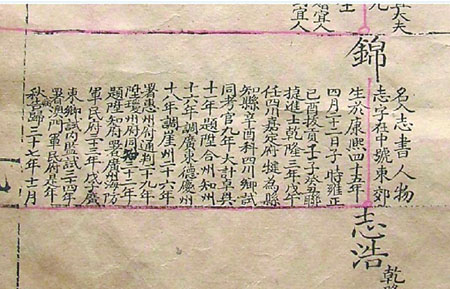 大夫
宜人
宜人
錦
名人志書人物
志字在中號東郊
生於康熙四十五年
四月二十二日子時雍正
己酉拔貢壬子癸丑聯
捷進士乾隆三年戊午
任四川嘉定府犍為縣
知縣辛酉科四川鄉試
同考官九年大計卓異
十一年題陞合州知州
十六年調廣東德慶州
十八年調崖州二十六年
署惠州府通判二十九年
陞瓊州府同知三十二年
題陞知府署廣海防
軍民府三十三年戊子廣
東鄉試內監試三十四年
署澳門軍民府是年
秋告歸三十六年十一月
志浩
乾